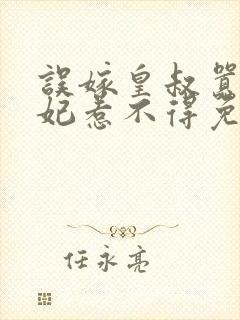 誤嫁皇叔囂
妃惹不得免
任永亮